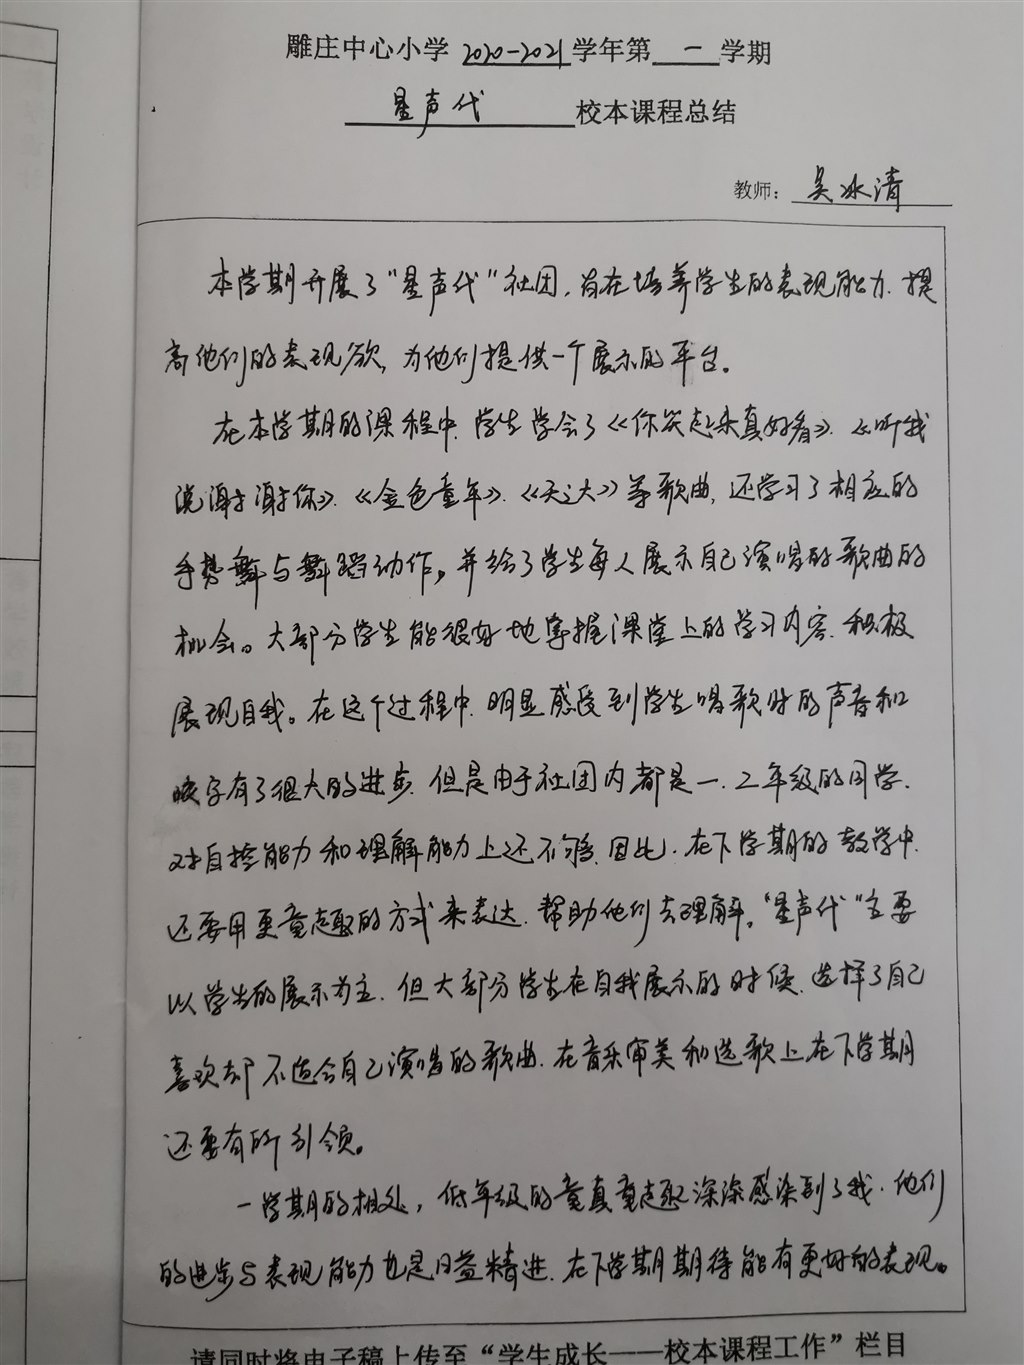 雕庄中心小学 2020-2021 学年第 一 学期
星声代 校本课程总结
教师：吴冰清
本学期开展了“星声代”社团，旨在培养学生的表现能力，提
高他们的表现欲，为他们提供一个展示的平台。
在本学期的课程中，学生学会了《你笑起来真好看》、《听我
说谢谢你》、《金色童年》、《天之大》等歌曲，还学习了相应的
手势舞与舞蹈动作，并给了学生每人展示自己演唱的歌曲的
机会。大部分学生能很好地掌握课堂上的学习内容，积极
展现自我。在这个过程中，明显感受到学生唱歌时的声音和
咬字有了很大的进步，但是由于社团内都是一、二年级的同学，
对自控能力和理解能力上还不够，因此，在下学期的教学中，
还要用更童趣的方式来表达，帮助他们去理解。“星声代”主要
以学生的展示为主，但大部分学生在自我展示的时候，选择了自己
喜欢却不适合自己演唱的歌曲，在音乐审美和选歌上在下学期
还要有所引领。
一学期的相处，低年级的童真童趣深深感染到了我，他们
的进步与表现能力也是日益精进，在下学期期待能有更好的表现。
请同时将电子稿上传至“学生成长——校本课程工作”栏目